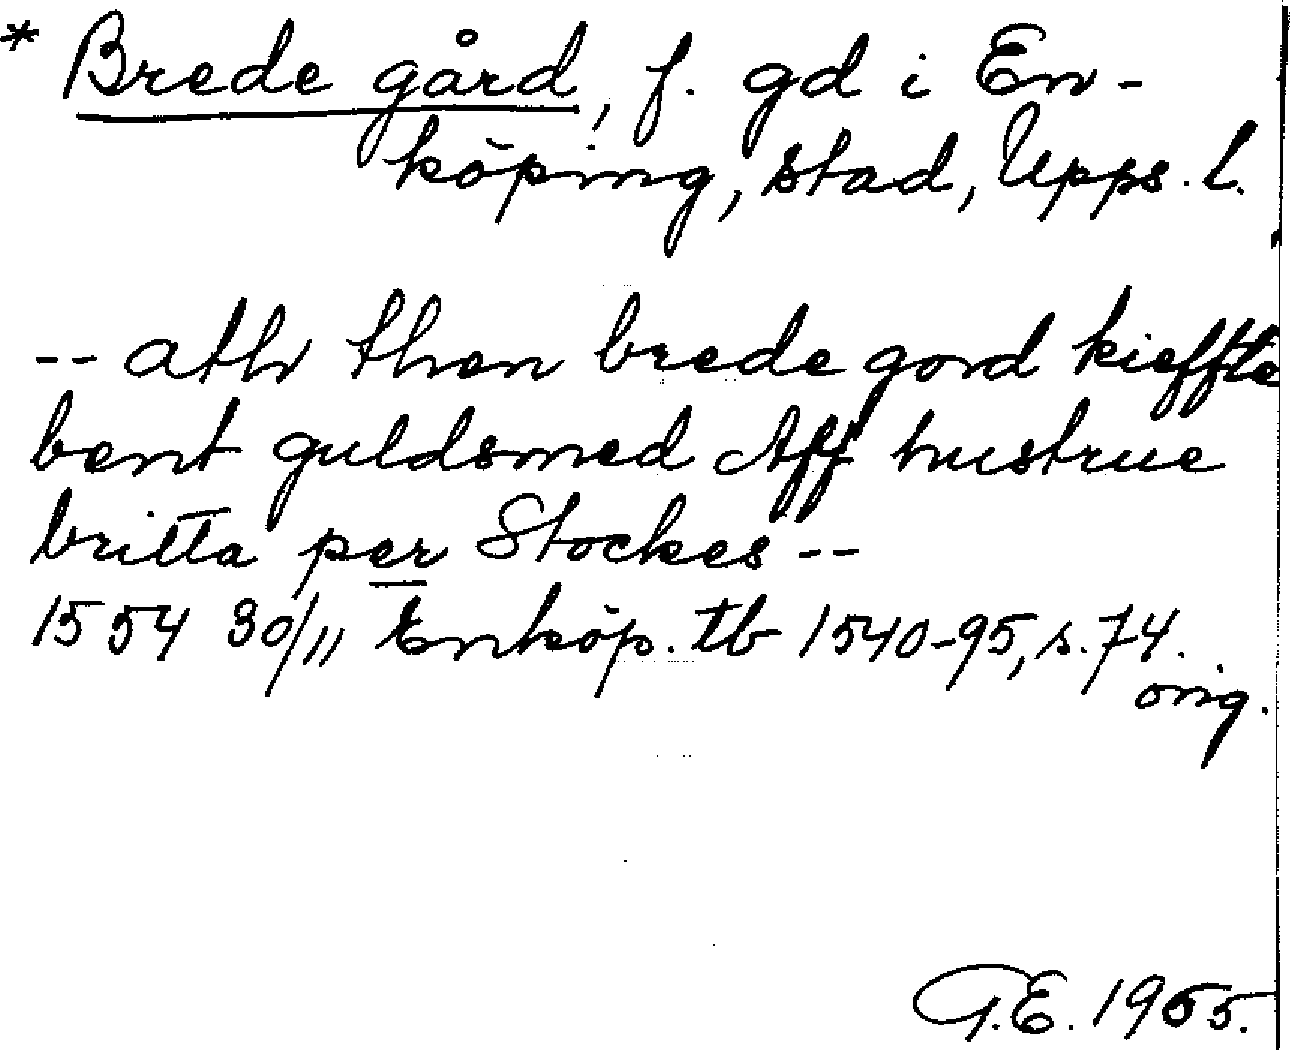 * Brede gård, f. gd i En-
köping, stad, Upps. l.
-- ath then brede gord kieffte
bent guldsmed Aff hustrue
britta per Stockes --
1554 30/11 Enköp. tb 1540-95, s. 74.
orig.
G.E. 1955.